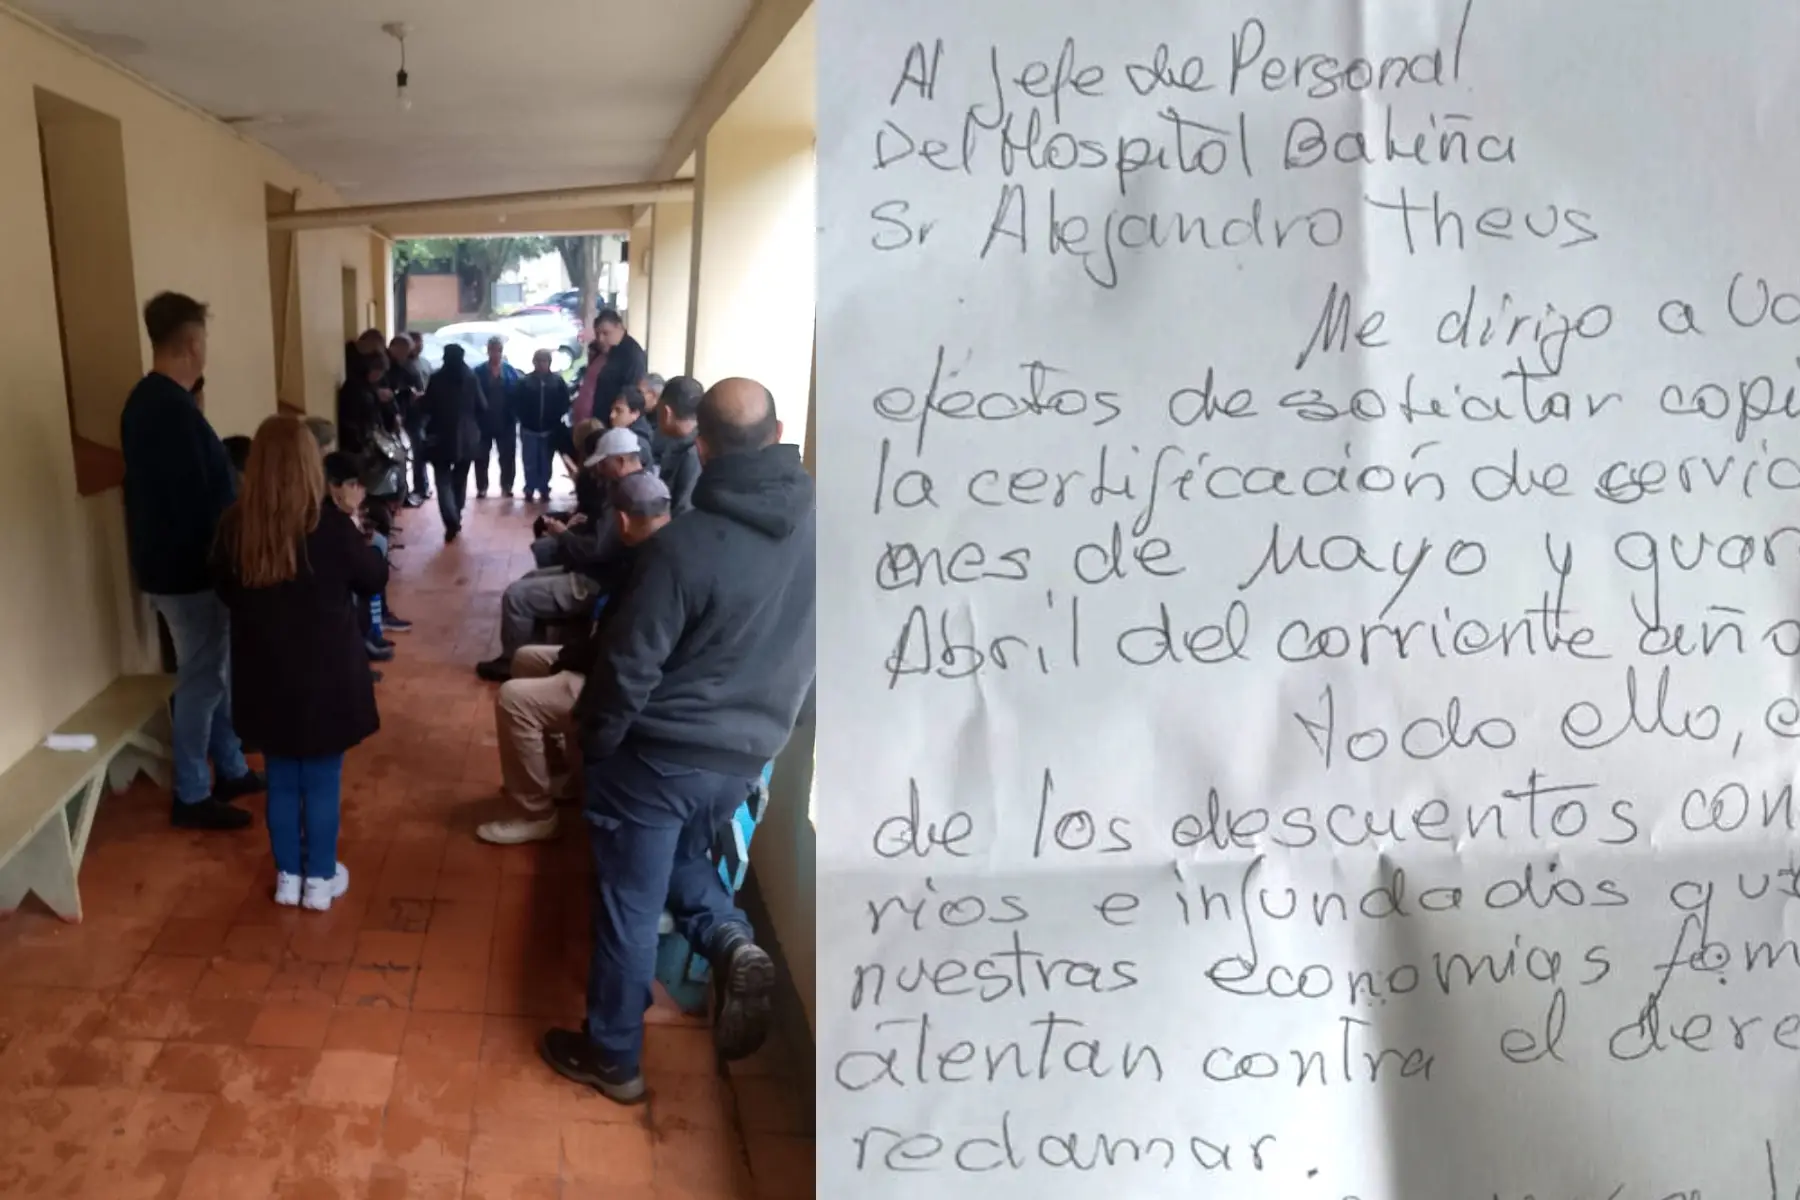 Al Jefe de Personal
Del Hospital Bateña
Sr Alejandro Theus
Me dirijo a
efectos de solicitar copi
la certificación de servic
mes de Mayo y guar
Abril del corriente año
todo ello, e
de los descuentos con
rios e infundados que
nuestras economias fam
atentan contra el dere
reclamar.